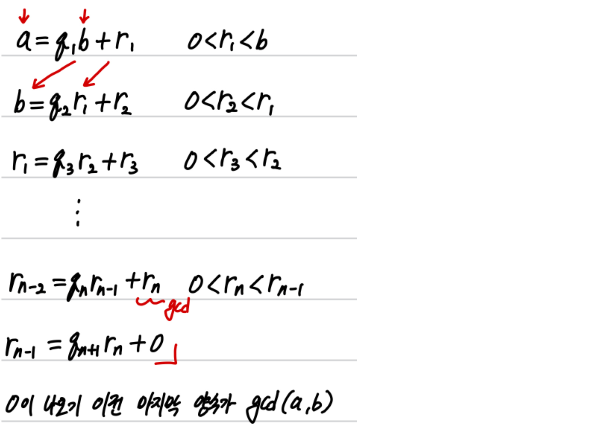 a = q₁b + r₁ 0 < r₁ < b
b = q₂r₁ + r₂ 0 < r₂ < r₁
r₁ = q₃r₂ + r₃ 0 < r₃ < r₂
⋮
rₙ₋₂ = qₙrₙ₋₁ + rₙ 0 < rₙ < rₙ₋₁
gcd
rₙ₋₁ = qₙ₊₁rₙ + 0
0이 나오기 이전 마지막 양수가 gcd(a,b)